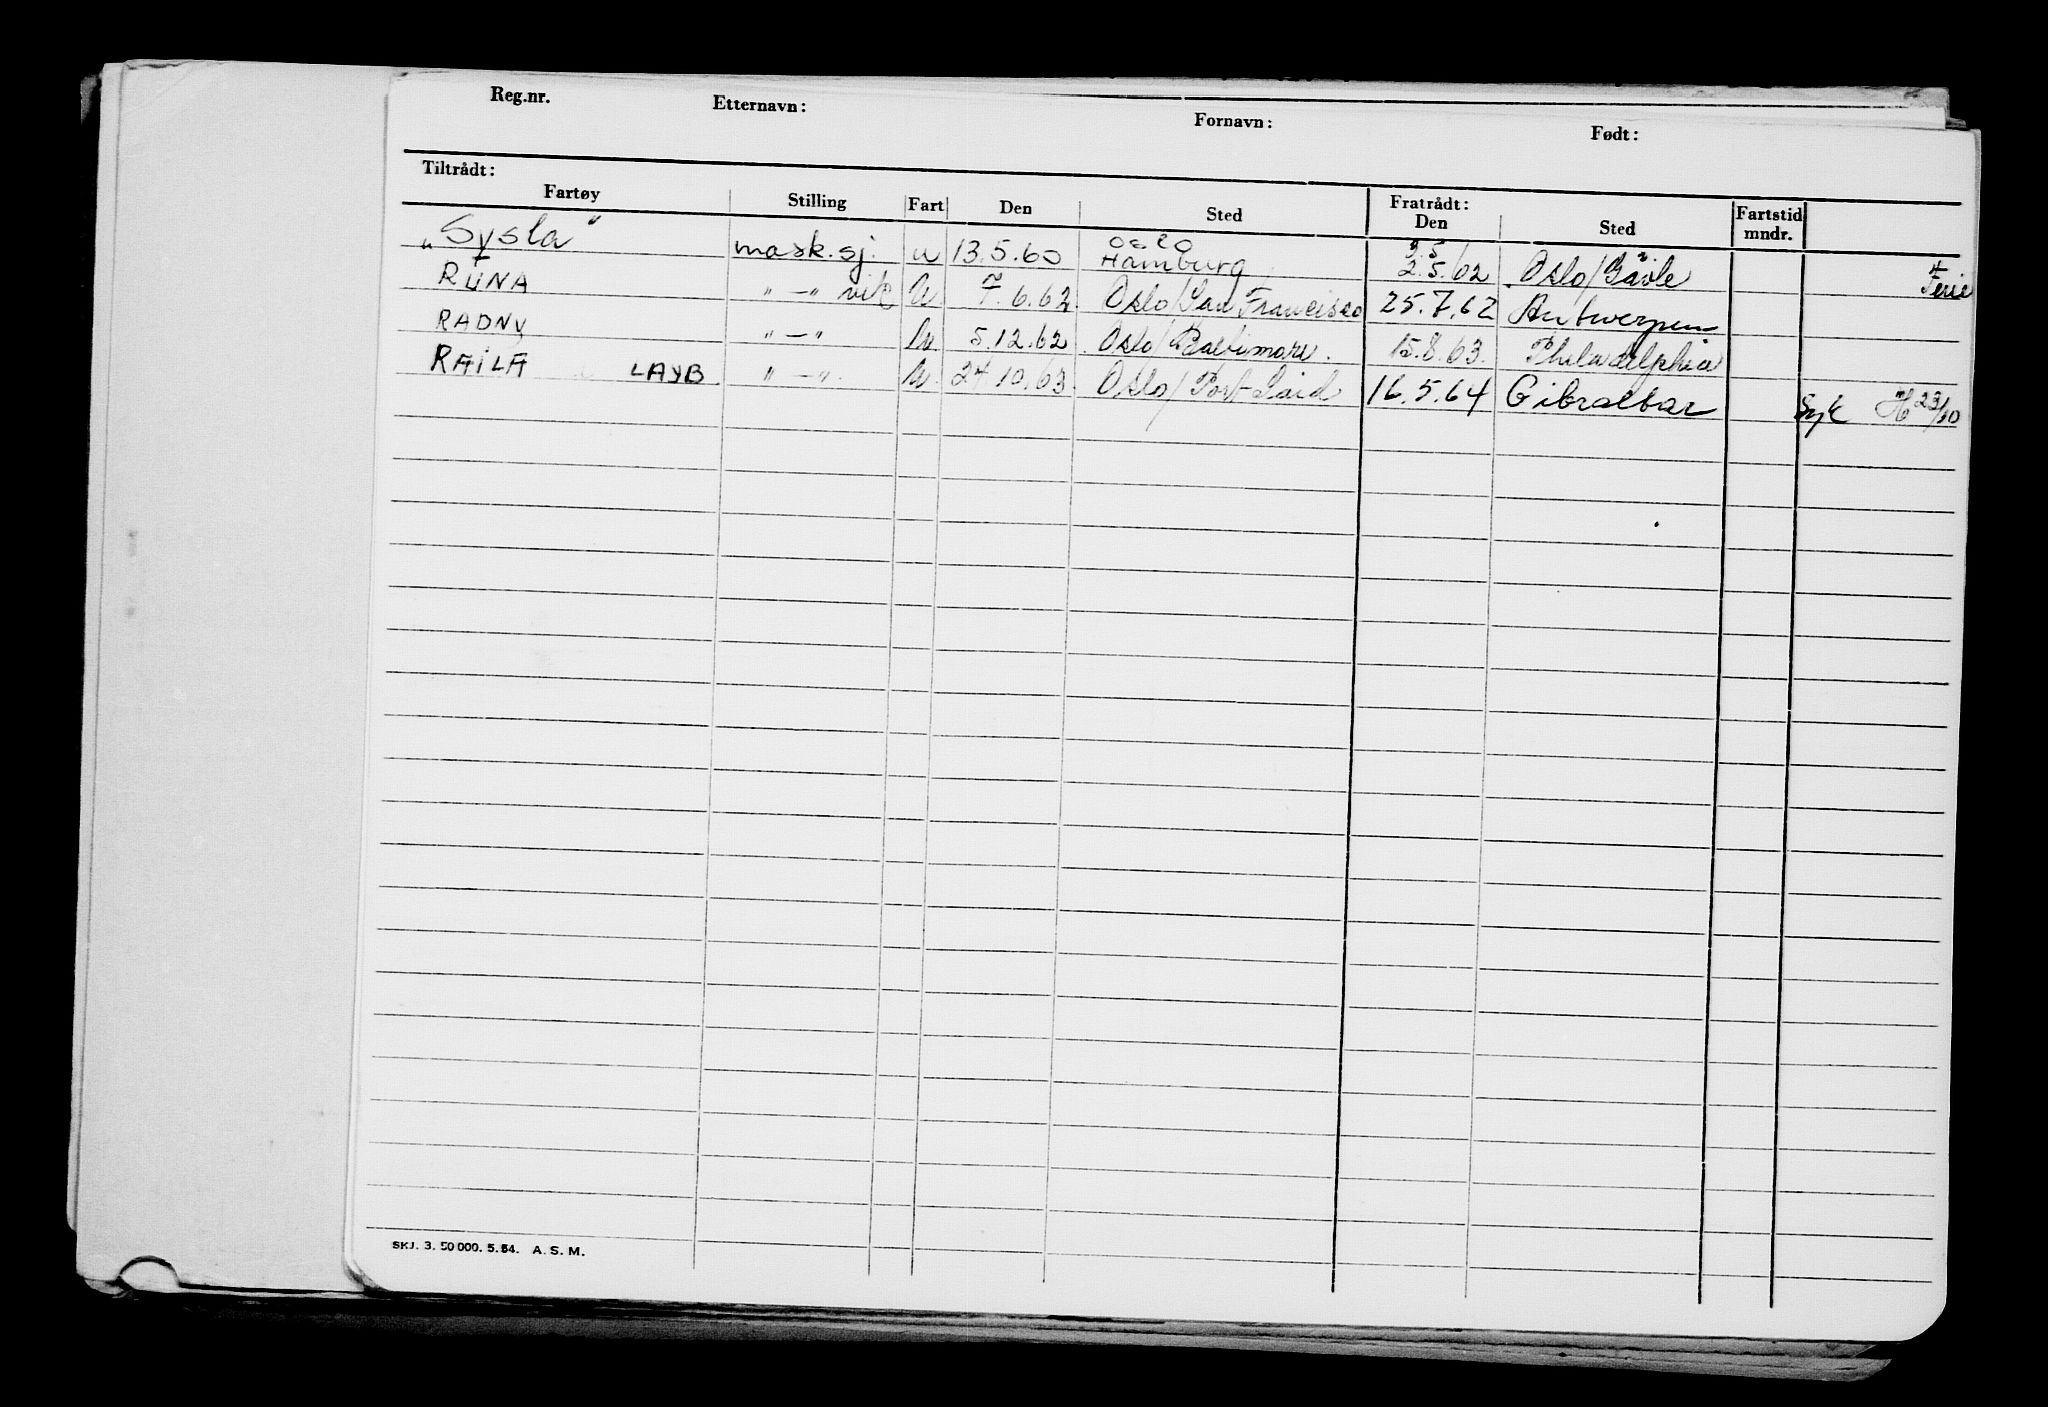 Reg.nr. Etternavn: Fornavn: Født:
Tiltrådt: Fratrådt:
Fartøy Stilling Fart Den Sted Den Sted Fartstid mndr.
"Sysla" mask.sj. u 13.5.60 Oslo Hamburg 9.5 2.5.62 Oslo/Gävle Ferie
RUNA " — " vik U 7.6.62 Oslo/San Francisco 25.7.62 Antwerpen
RADNY " — " U 5.12.62 Oslo/Baltimore. 15.8.63. Philadelphia
RAILA LAYB " — " U. 24.10.63. Oslo/Port Said 16.5.64 Gibraltar Syk H 23/10
SKJ. 3. 50 000. 5. 54. A. S. M.